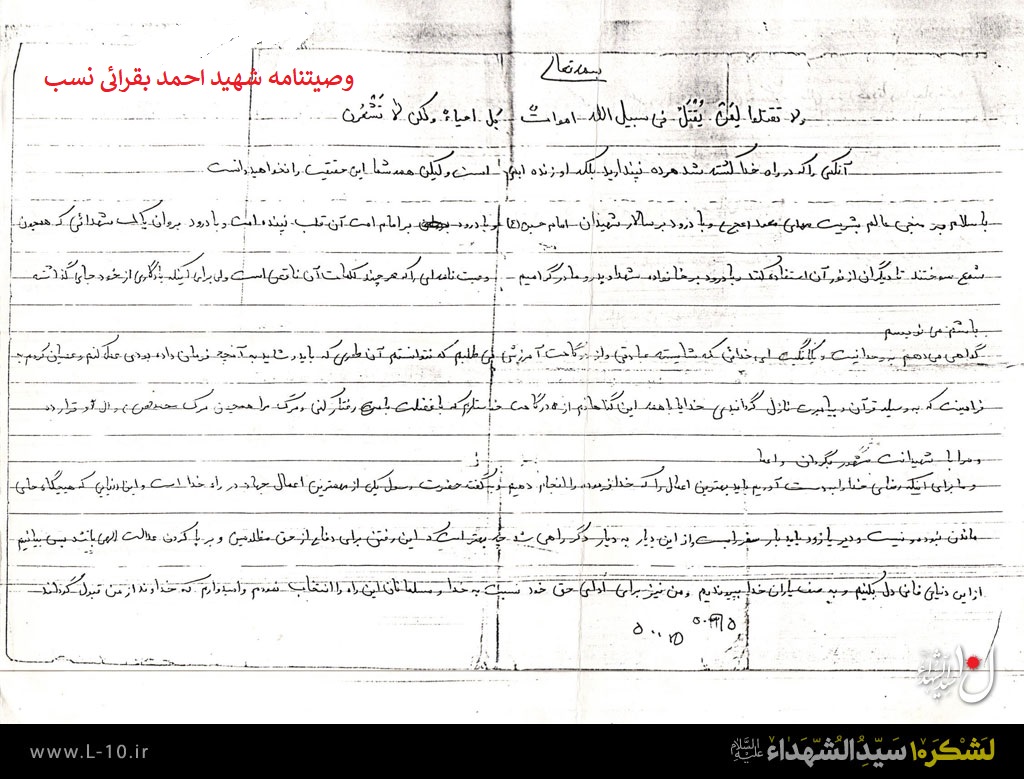 وصیتنامه شهید احمد بقرائی نسب
بسمه تعالی
ولا تقتلوا لِمَنْ یُقْتَلُ فی سبیل الله امواتٌ بَل احیاءٌ ولکن لا تَشْعُرُن
آنکس را که در راه خدا کشته شد مرده نپندارید بلکه او زنده ابدی است ولیکن همه شما این حقیقت را نخواهید دانست
با سلام بر منجی عالم بشریت مهدی موعود (عج) و با درود بر سالار شهیدان امام حسین (ع) و با درود بر امام امت آن قلب تپنده امت و با درود بروان پاک شهدائی که همچون
شمع سوختند تا دیگران از نور آن استفاده کنند و با درود بر خانواده شهداء پدر و مادر گرامیم وصیت نامه ای را که هر چند کلمات آن ناقص است ولی برای آینکه یادگاری از خود جای گذاشته
باشم می نویسم
گواهی می دهم به وحدانیت و یگانگیت ای خدائی که شایسته عبادتی و از درگاهت آمرزش می طلبم که نتوانستم آن طوری که باید و شاید به آنچه فرمان داده بودی عمل کنم و عصیان کردم به
فرامینت که به وسیله قرآن و پیامبرت نازل گرداندی خدایا با همه این گناهانم از درگاهت خواستارم که با فضلت با من رفتار کنی و مرگ مرا همچون مرگ محمد (ص) و آل او قرار ده
و مرا با شهیدانت محشور بگردان
و ما برای اینکه رضای خدا را بدست آوریم باید بهترین اعمال را که خدا فرموده را انجام دهیم و به گفت حضرت رسول یکی از مهمترین اعمال جهاد در راه خدا است و این دنیایی که هیچگاه جای
ماندن نبوده و نیست و دیر یا زود باید بار سفر را بست و از این دیار به دیار دگر راهی شد چه بهتر است که این رفتن برای دفاع از حق مظلومین و بر پا کردن عدالت الهی باشد پس بیائیم
از این دنیای فانی دل بکنیم و به صف یاران خدا بپیوندیم و من نیز برای ادای حق خود نسبت به خدا و مسلمانان این راه را انتخاب نمودم و امیدوارم که خداوند از من قبول گرداند
www.L-10.ir
لَشکَرِه ۱۰ سَیّدُالشُّهَداء عَلَیهِ السَّلام